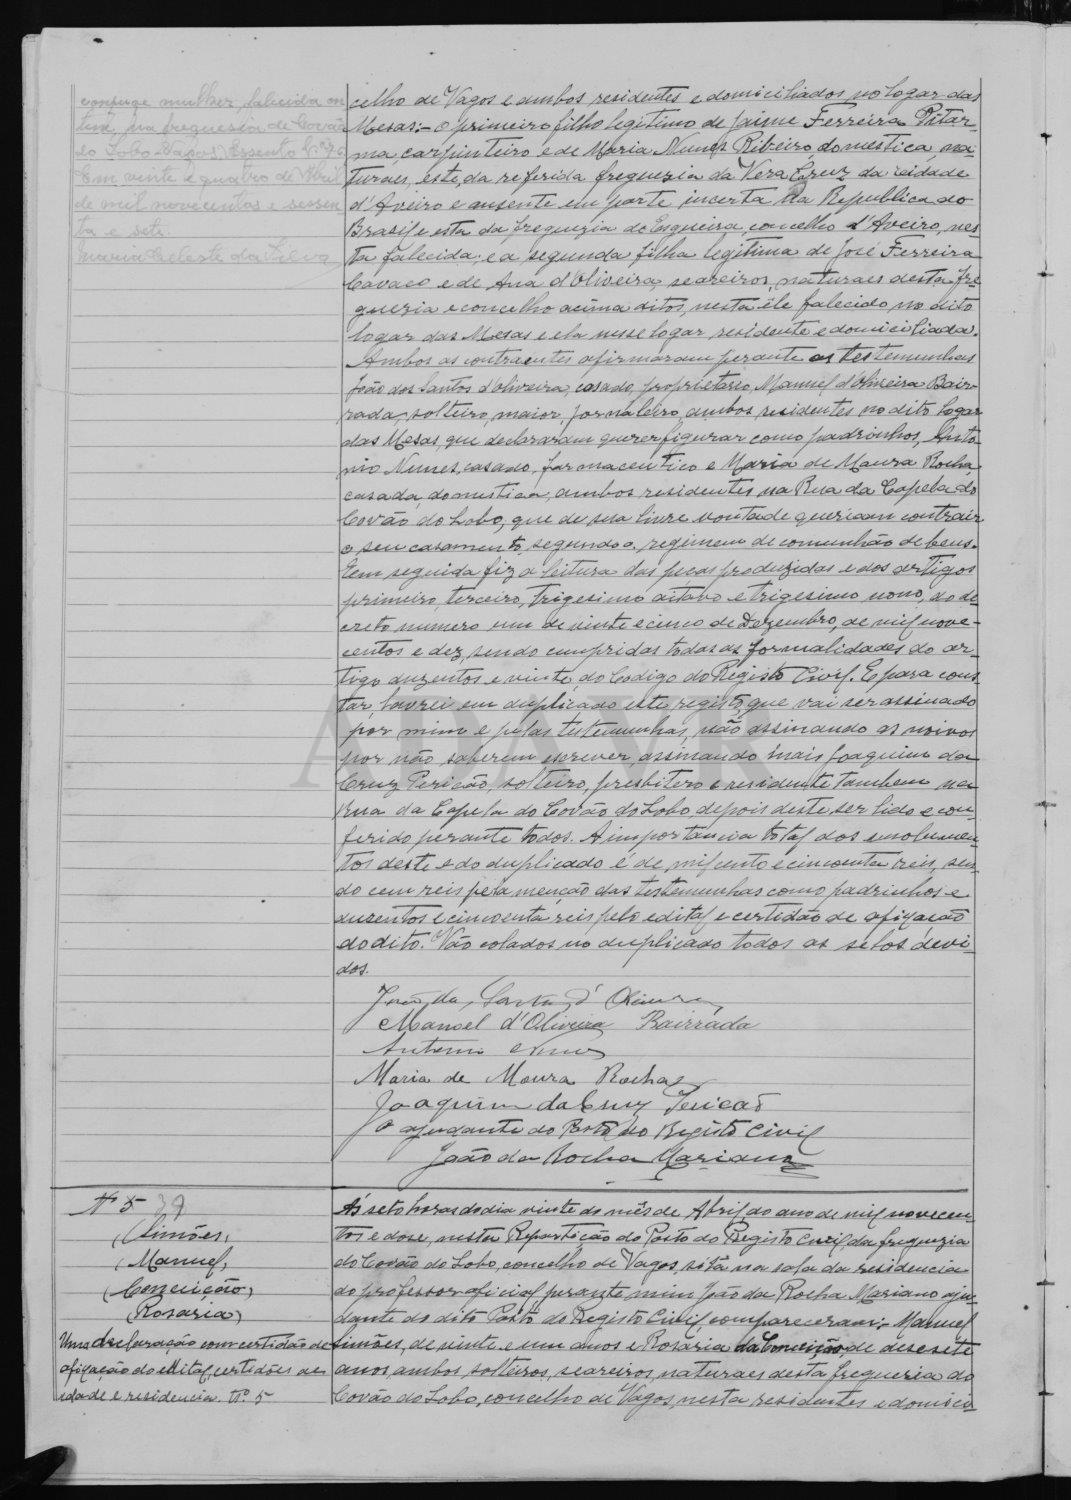 conjuge mulher, falecida on
tem, na freguesia de Covão
do Lobo - Vagos. Assento Nº 76
Em vinte e quatro de Abril
de mil novecentos e sessen
ta e sete.
Maria Celeste da Silva
celho de Vagos e ambos residentes e domiciliados no logar das
Mesas:- o primeiro filho legitimo de Jaime Ferreira Pitar-
ma, carpinteiro e de Maria Nunes Ribeiro, domestica, na-
turaes, este, da referida freguezia da Vera Cruz da cidade
d'Aveiro e ausente em parte incerta na Republica do
Brasil e esta da freguezia de Esgueira, concelho d'Aveiro, nes-
ta falecida; e a segunda filha legitima de José Ferreira
Cavaco e de Ana d'Oliveira, seareiros, naturaes desta fre-
guezia e concelho acima ditos, nesta êle falecido no dito
logar das Mesas e ela nesse logar residente e domiciliada.
Ambos os contraentes afirmaram perante as testemunhas
João dos Santos d'Oliveira, casado, proprietario, Manuel d'Oliveira Bair-
rada, solteiro, maior, jornaleiro, ambos residentes no dito logar
das Mesas, que declararam querer figurar como padrinhos, Anto-
nio Nunes, casado, farmaceutico e Maria de Moura Rocha,
casada, domestica, ambos residentes na Rua da Capela do
Covão do Lobo, que de sua livre vontade queriam contrair
o seu casamento, segundo o regimem de comunhão de bens.
Em seguida fiz a leitura das peças produzidas e dos artigos
primeiro, terceiro, trigesimo oitavo e trigesimo nono, do de-
creto numero um de vinte e cinco de Dezembro, de mil nove-
centos e dez, sendo cumpridas todas as formalidades do ar-
tigo duzentos e vinte, do Codigo do Registo Civil. E para cons-
tar, lavrei em duplicado este registo, que vai ser assinado
por mim e pelas testemunhas, não assinando os noivos
por não saberem escrever, assinando mais Joaquim da
Cruz Pericão, solteiro, presbitero e residente tambem na
Rua da Capela do Covão do Lobo, depois deste ser lido e con-
ferido perante todos. A importancia total dos emolumen-
tos deste e do duplicado é de mil cento e cincoenta reis, sen-
do cem reis pela menção das testemunhas como padrinhos e
duzentos e cincoenta reis pelo edital e certidão de afixação
do dito. Vão colados no duplicado todos os selos devi-
dos.
João dos Santos d'Oliveira
Manoel d'Oliveira Bairrada
Antonio Nunes
Maria de Moura Rocha
Joaquim da Cruz Pericão
O ajudante do Posto do Registo Civil
João da Rocha Mariano
Nº 5 39
(Simões,
(Manuel,
(Conceição)
(Rosaria)
Uma declaração com certidão de
afixação do edital, certidões de
idade e residencia. Nº 5
Ás sete horas do dia vinte do mês de Abril do ano de mil novecen-
tos e doze, nesta Repartição do Posto do Registo Civil da freguezia
do Covão do Lobo, concelho de Vagos, sita na sala da residencia
do professor oficial, perante mim João da Rocha Mariano aju-
dante do dito Posto do Registo Civil compareceram:- Manuel
Simões, de vinte e um anos e Rosaria da Conceição de desesete
anos, ambos solteiros, seareiros, naturaes desta freguezia do
Covão do Lobo, concelho de Vagos, nesta residentes e domici-
ADAVR